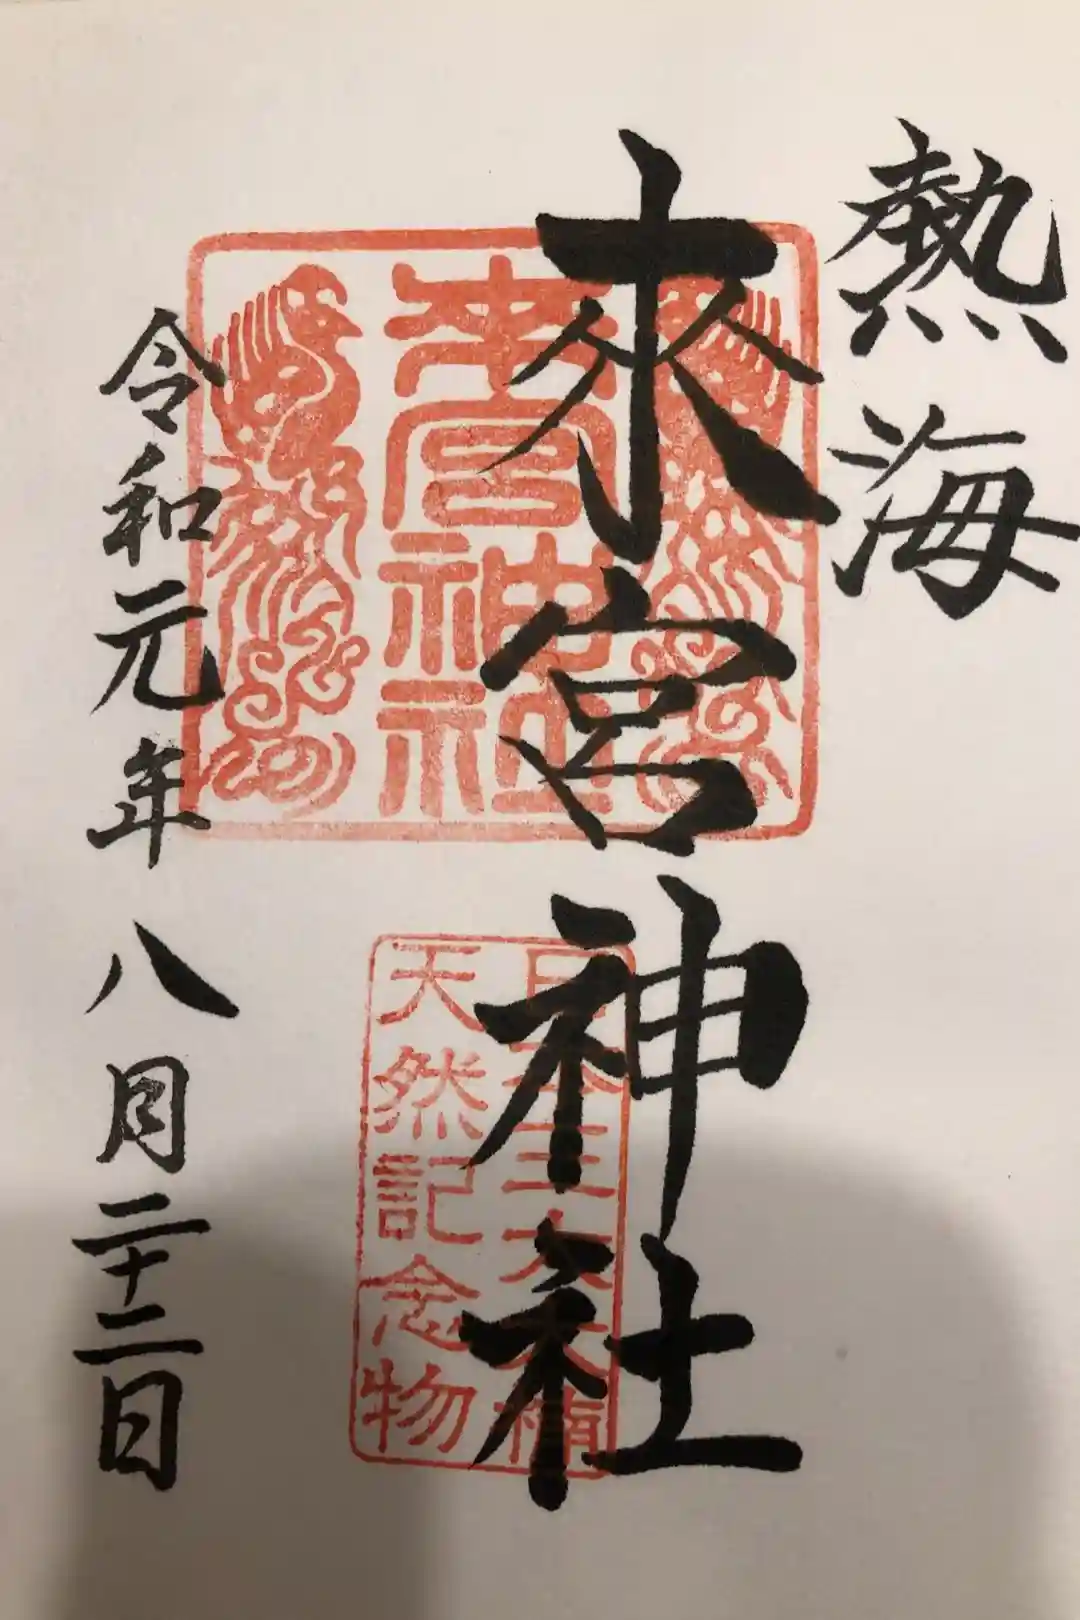 熱海
來宮神社
來宮神社
日本三大大楠
天然記念物
令和元年八月二十二日